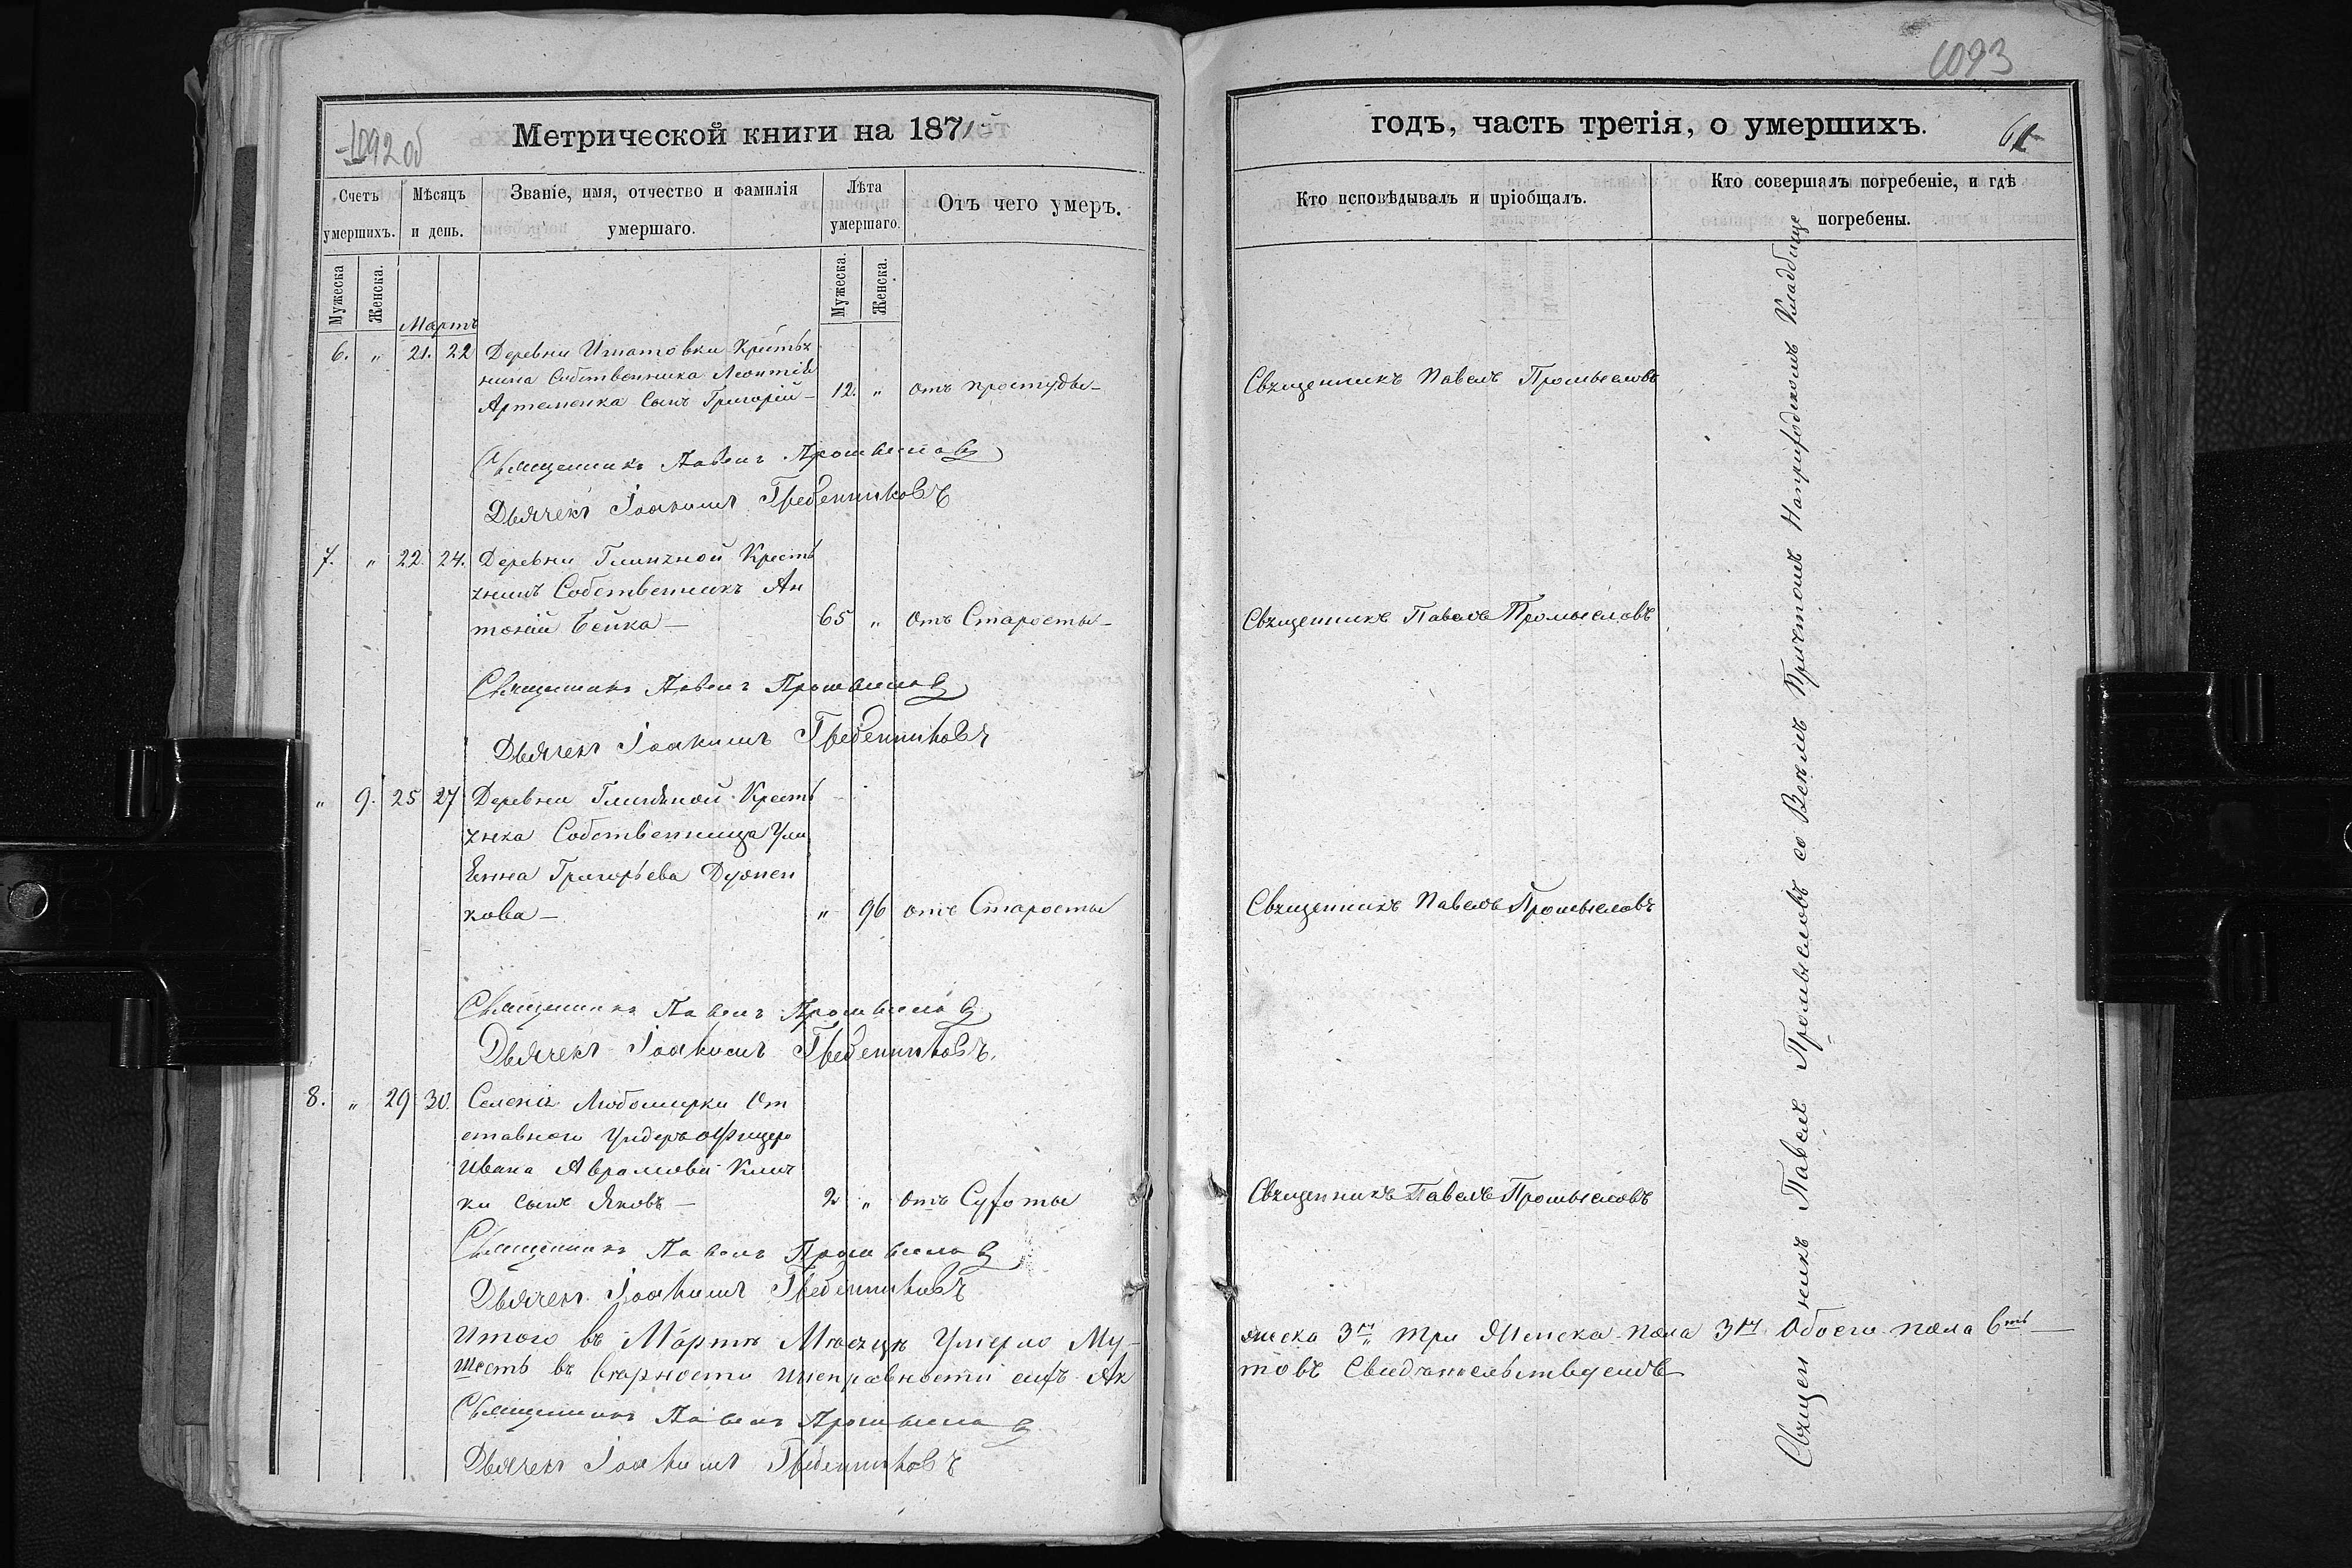 1092 об
Метрической книги на 1871
Счетъ умершихъ.
Мѣсяцъ и день.
Званіе, имя, отчество и фамилія умершаго.
Лѣта умершаго.
Отъ чего умеръ.
Мужеска
Женска.
Мужеска.
Женска.
Мартъ
6. " 21. 22 Деревни Игнатовки Крестья
нина Собственника Леонтія
Артеменка сынъ Григорій — 12. " отъ простуды —
Священникъ Павелъ Промысловъ
Дьячекъ Іоакимъ Гребенниковъ
7. " 22. 24. Деревни Глиняной Кресть
янинъ Собственникъ Ан
тоній Бейка — 65 " Отъ Старости —
Священникъ Павелъ Промысловъ
Дьячекъ Іоакимъ Гребенниковъ
" 9. 25 27 Деревни Глиняной Кресть
янка Собственница Ули
Григорьева
кова — " 96 отъ Старости
Священникъ Павелъ Промысловъ
Дьячекъ Іоакимъ Гребенниковъ.
8. " 29 30. Селенія Любомирки От
ставнаго Ундеръ офицера
Ивана Аврамова
ки сынъ Яковъ — 2 " отъ Сухоты
Священникъ Павелъ Промысловъ
Дьячекъ Іоакимъ Гребенниковъ
Итого въ Мартѣ Мѣсяцѣ Умерло Му-
шесть въ вѣрности и исправности сихъ Ак
Священникъ Павелъ Промысловъ
Дьячекъ Іоакимъ Гребенниковъ
1093
годъ, часть третія, о умершихъ.
61
Кто исповѣдывалъ и пріобщалъ.
Кто совершалъ погребеніе, и гдѣ погребены.
Священникъ Павелъ Промысловъ
Священникъ Павелъ Промысловъ
Священникъ Павелъ Промысловъ
Священникъ Павелъ Промысловъ
жеска 3 три Женска пола 3 Обоего пола 6ть —
товъ Свидѣтельствуемъ
Священникъ Павелъ Промысловъ со Всѣмъ Причтомъ На Кладбище